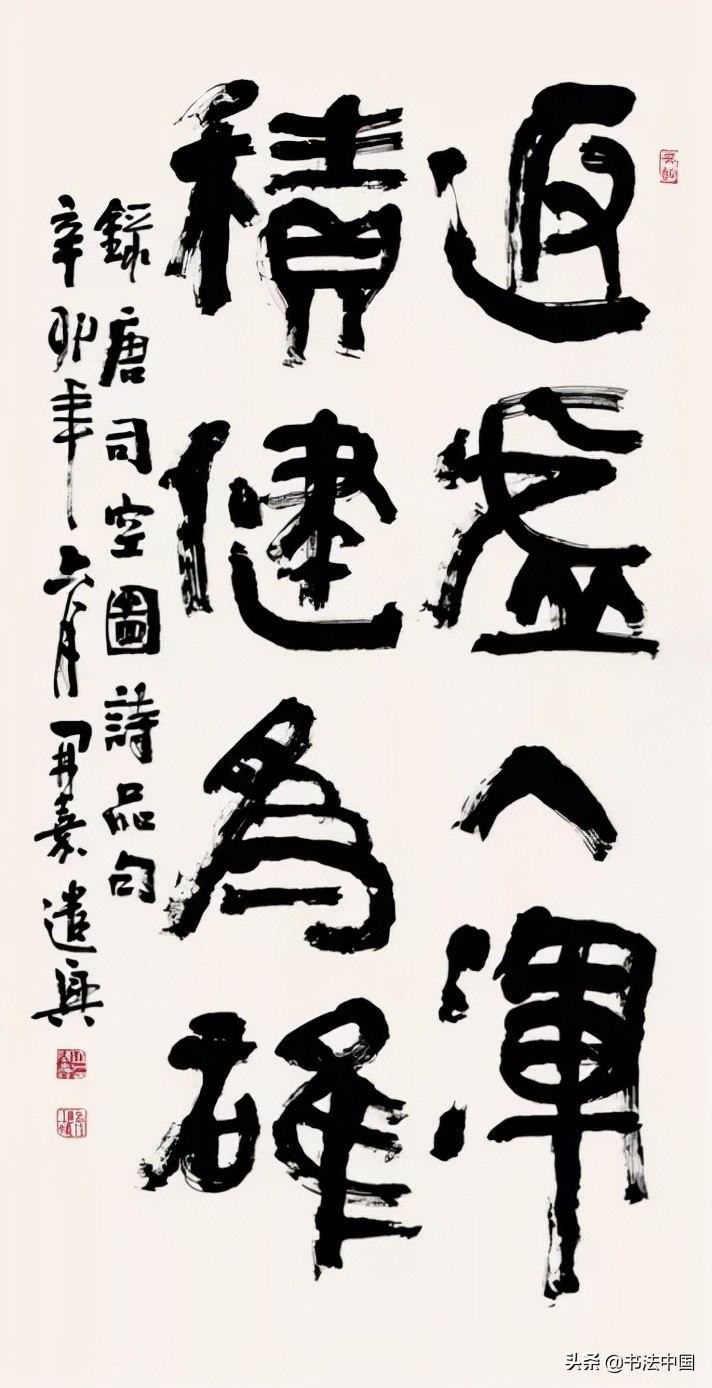 返虛入渾
積健為雄
錄唐司空圖詩品句
辛卯年六月開 遣興
头条 @书法中国